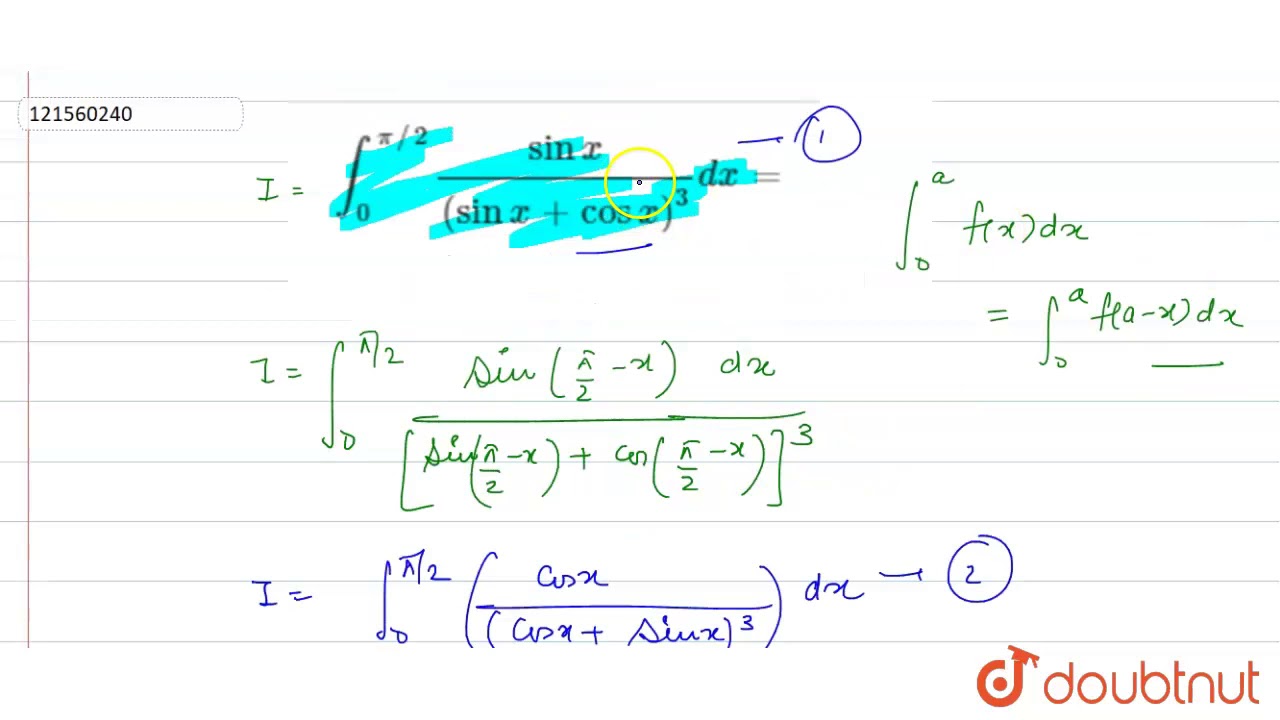 121560240
I = ∫_0^{π/2} \frac{sin x}{(sin x + cos x)^3} dx = → ①
∫_0^a f(x) dx
= ∫_0^a f(a-x) dx
I = ∫_0^{π/2} \frac{sin(\frac{π}{2} - x) dx}{[sin(\frac{π}{2} - x) + cos(\frac{π}{2} - x)]^3}
I = ∫_0^{π/2} (\frac{cos x}{(cos x + sin x)^3}) dx → ②
doubtnut